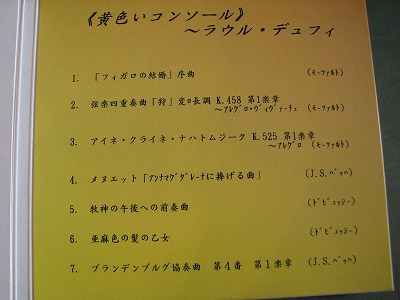 《黄色いコンソール》
～ラウル・デュフィ
1. 「フィガロの結婚」序曲 (ﾓｰﾂｧﾙﾄ)
2. 弦楽四重奏曲「狩」変ロ長調 K.458 第1楽章
～ｱﾚｸﾞﾛ・ｳﾞｨｳﾞｧｰﾁｪ (ﾓｰﾂｧﾙﾄ)
3. アイネ・クライネ・ナハトムジーク K.525 第1楽章
～ｱﾚｸﾞﾛ (ﾓｰﾂｧﾙﾄ)
4. メヌエット「ｱﾝﾅﾏｸﾞﾀﾞﾚｰﾅに捧げる曲」 (J.S.ﾊﾞｯﾊ)
5. 牧神の午後への前奏曲 (ﾄﾞﾋﾞｭｯｼｰ)
6. 亜麻色の髪の乙女 (ﾄﾞﾋﾞｭｯｼｰ)
7. ブランデンブルグ協奏曲 第4番 第1楽章 (J.S.ﾊﾞｯﾊ)